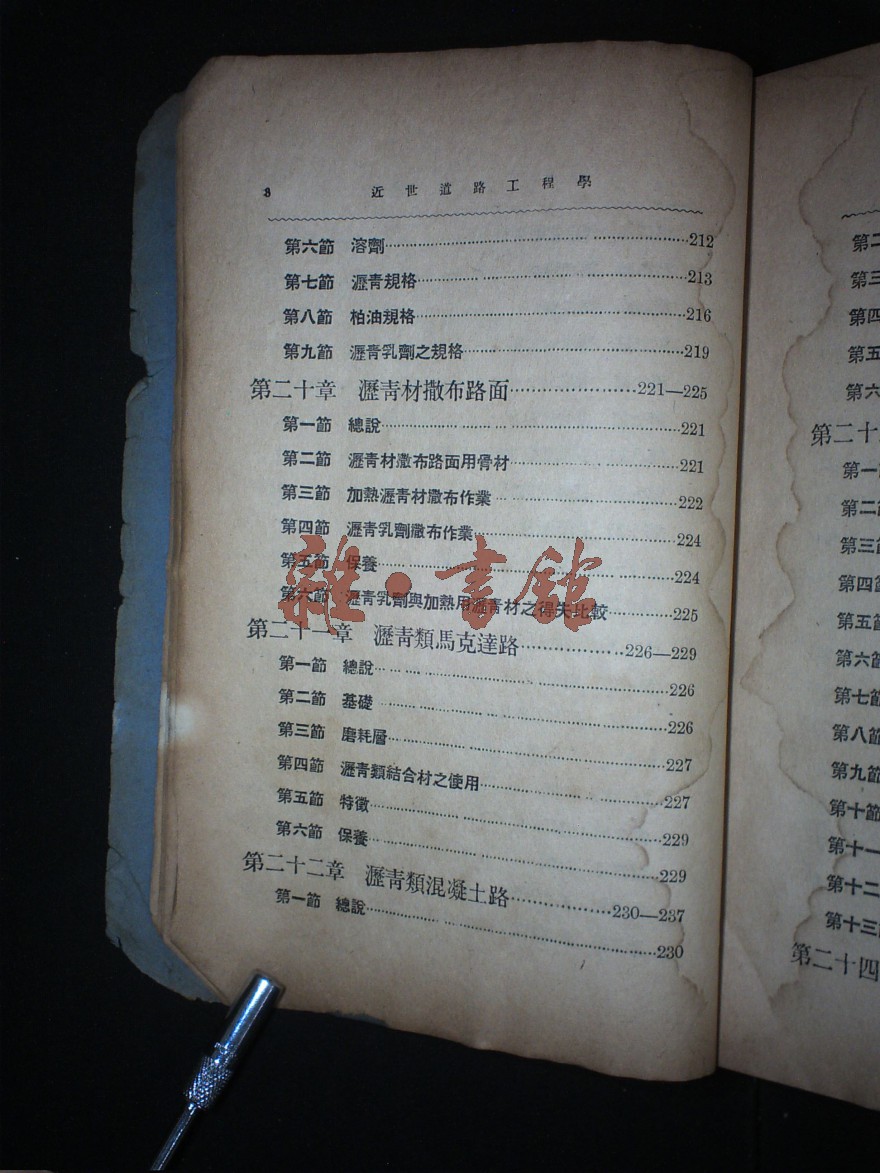 8 近世道路工程學
第六節 溶劑……212
第七節 瀝青規格……213
第八節 柏油規格……216
第九節 瀝青乳劑之規格……219
第二十章 瀝青材撒布路面……221—225
第一節 總說……221
第二節 瀝青材撒布路面用骨材……221
第三節 加熱瀝青材撒布作業……222
第四節 瀝青乳劑撒布作業……224
第五節 保養……224
第六節 瀝青乳劑與加熱用瀝青材之得失比較……225
第二十一章 瀝青類馬克達路……226—229
第一節 總說……226
第二節 基礎……226
第三節 磨耗層……227
第四節 瀝青類結合材之使用……227
第五節 特徵……229
第六節 保養……229
第二十二章 瀝青類混凝土路……230—237
第一節 總說……230
雜·書館
第二
第三
第四
第五
第六
第二十
第一
第二節
第三節
第四節
第五節
第六節
第七節
第八節
第九節
第十節
第十一
第十二
第十三
第二十四